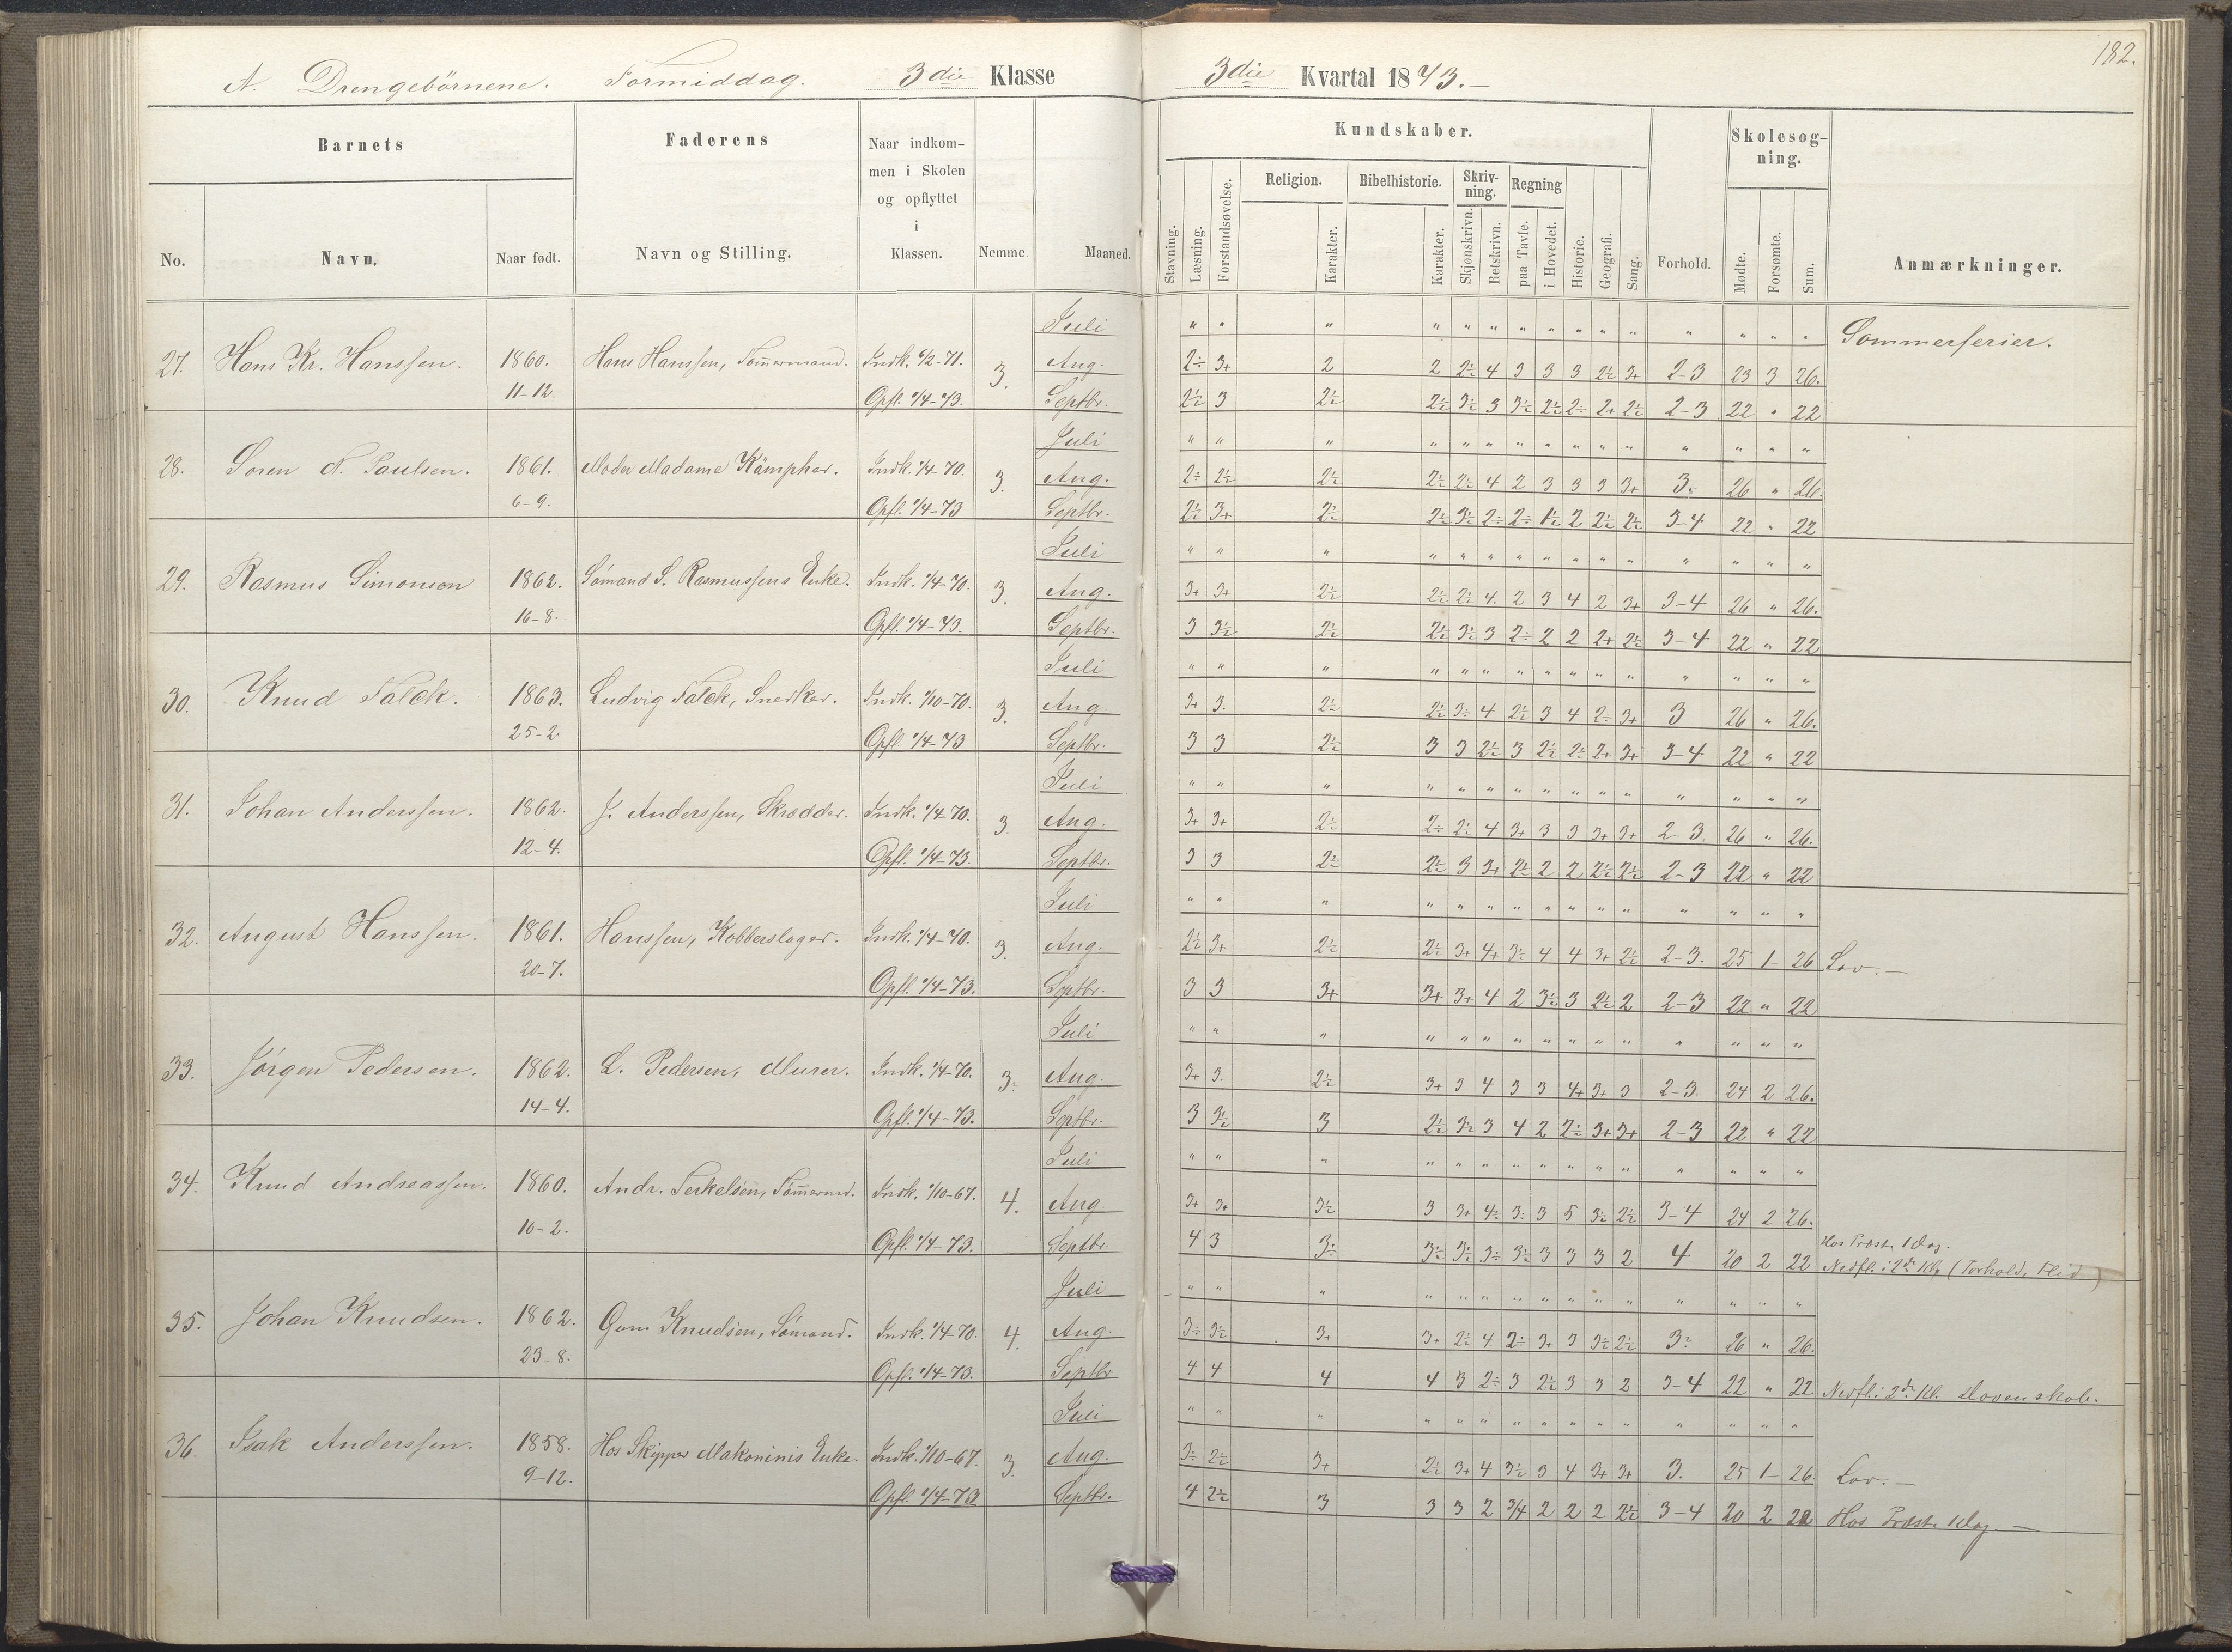 182.
A. Drengebörnene. Formiddag. 3die Klasse 3die Kvartal 1873.
Barnets Faderens Naar indkommen i Skolen og opflyttet i Klassen. Nemme Maaned. Kundskaber. Forhold. Skolesøgning. Anmærkninger.
No. Navn. Naar født. Navn og Stilling. Stavning. Læsning. Forstandsøvelse. Religion. Karakter. Bibelhistorie. Karakter. Skrivning. Skjønskrivn. Retskrivn. Regning paa Tavle. i Hovedet. Historie. Geografi. Sang. Mødte. Forsømte. Sum.
Juli " " " " " " " " " " " " " " " Sommerferier.
27. Hans Kr. Hanssen. 1860. Hans Hanssen, Tømmermand. Indk. 6/2-71. 3. Aug. 2÷ 3+ 2 2 2½ 4 3 3 3 2½ 3+ 2-3 23 3 26.
11-12. Opfl. 1/4-73. Septbr. 2½ 3 2½ 2½ 3½ 3 3½ 2½ 2÷ 2+ 2½ 2-3 22 " 22
Juli " " " " " " " " " " " " " " "
28. Soren N. Paulsen. 1861. Moder Madame Kämpher. Indk. 1/4-70. 3. Aug. 2÷ 2½ 2½ 2½ 2½ 4 2 3 3 3 3+ 3. 26 " 26.
6-9. Opfl. 1/4-73 Septbr. 2½ 3+ 2½ 2½ 3½ 2÷ 2÷ 1½ 2 2½ 2½ 3-4 22 " 22
Juli " " " " " " " " " " " " " " "
29. Rasmus Simonsen 1862. Sömand S. Rasmussens Enke. Indk. 1/4-70. 3. Aug. 3+ 3+ 2½ 2½ 2½ 4. 2 3 4 2 3+ 3-4 26 " 26.
16-8. Opfl. 1/4-73. Septbr. 3 3½ 2½ 2½ 3½ 3 2÷ 2 2 2+ 2½ 3-4 22 " 22
Juli " " " " " " " " " " " " " " "
30. Knud Falck. 1863. Ludvig Falck, Snedker. Indk. 1/10-70. 3. Aug. 3+ 3. 2½ 2½ 3÷ 4 2½ 3 4 2÷ 3+ 3 26 " 26.
25-2. Opfl. 1/4-73 Septbr. 3 3 2½ 3 3 2½ 3 2½ 2÷ 2+ 3+ 3-4 22 " 22
Juli " " " " " " " " " " " " " " "
31. Johan Anderssen. 1862. J. Anderssen, Skrædder. Indk. 1/4-70. 3. Aug. 3+ 3+ 2½ 2÷ 2½ 4 3+ 3 3 3+ 3+ 2-3. 26 " 26.
12-4. Opfl. 1/4-73. Septbr. 3 3 2½ 2½ 3 3+ 2½ 2 2 2½ 2½ 2-3 22 " 22
Juli " " " " " " " " " " " " " " "
32. August Hanssen. 1861. Hanssen, Kobberslager. Indk. 1/4-70. 3. Aug. 2½ 3+ 2½ 2½ 3+ 4+ 3½ 4 4 3+ 2½ 2-3. 25 1 26 Lov.
20-7. Opfl. 1/4-73. Septbr. 3 3 3+ 3+ 3+ 4 2 3½ 3 2½ 2 2-3 22 " 22
Juli " " " " " " " " " " " " " " "
33. Jörgen Pedersen. 1862. L. Pedersen, Murer. Indk. 1/4-70. 3. Aug. 3+ 3. 2½ 3+ 3 4 3 3 4+ 3+ 3 2-3. 24 2 26.
14-4. Opfl. 1/4-73. Septbr. 3 3½ 3 2½ 3½ 3 4 2 2÷ 3+ 3+ 2-3 22 " 22
Juli " " " " " " " " " " " " " " "
34. Knud Andreassen. 1860. Andr. Terkelsen, Tömermd. Indk. 1/10-67. 4. Aug. 3+ 3+ 3½ 3 3+ 4÷ 3÷ 3 5 3½ 2½ 3-4 24 2 26.
10-2. Opfl. 1/4-73. Septbr. 4 3 3÷ 3½ 3½ 3÷ 3½ 3 3 3 2 4 20 2 22 Hos Præst. 1 Dag.
Nedfl. i 2de Kl. (Forhold, Flid)
Juli " " " " " " " " " " " " " " "
35. Johan Knudsen. 1862. Gum Knudsen, Sömand. Indk. 1/4-70. 4. Aug. 3÷ 3½ 3+ 3+ 2½ 4 2÷ 3+ 3 3½ 2½ 3÷ 26 " 26.
23-8. Opfl. 1/4-73. Septbr. 4 4 4 4 3 2÷ 3 2½ 3 3 2 3-4 22 " 22 Nedfl. i 2de Kl.
Juli " " " " " " " " " " " " " " "
36. Isak Anderssen. 1858. Hos Skipper Makoninis Enke. Indk. 1/10-67. 3. Aug. 3÷ 2½ 3+ 2½ 3+ 4 3½ 3 4 3+ 3+ 3. 25 1 26. Lov.
9-12. Opfl. 1/4-73 Septbr. 4 2½ 3 3 3 2 3/4 2 2 2 2½ 3-4 20 2 22 Hos Præst. 1 Dag.